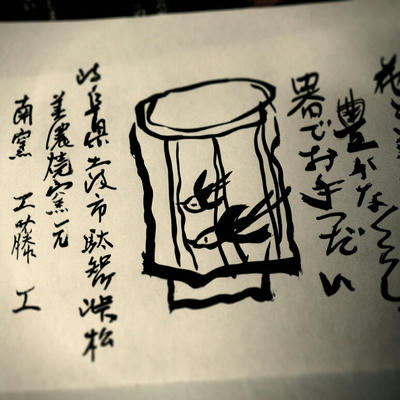 豊かなくらし
器でお手つだい
岐阜県土岐市駄智峠松
美濃焼窯元
南窯 工藤 工